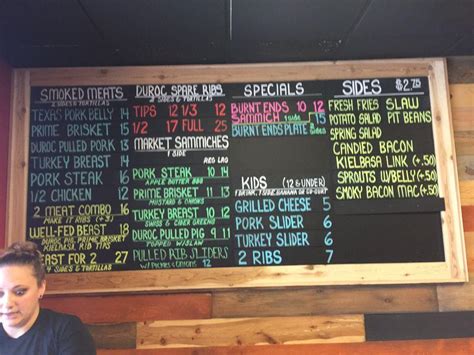 SMOKED MEATS
2 SIDES & TORTILLAS
TEXAS PORK BELLY 14
PRIME BRISKET 15
DUROC PULLED PORK 13
TURKEY BREAST 14
PORK STEAK 16
1/2 CHICKEN 12
2 MEAT COMBO 16
MAKE IT RIBS
WELL-FED BEAST 18
DUROC PIG, PRIME BRISKET
KIELBASA, RIB TIPS
FEAST FOR 2 27
4 SIDES & TORTILLAS
DUROC SPARE RIBS
2 SIDES & TORTILLAS
TIPS 12 1/3 12
1/2 17 FULL 25
MARKET SAMMICHES
1 SIDE
REG LRG
PORK STEAK 10 14
APPLE BUTTER BBQ
PRIME BRISKET 11
MUSTARD & ONIONS
TURKEY BREAST 10 12
SWISS & CIDER GREENS
DUROC PULLED PIG 9 11
TOPPED W/SLAW
PULLED RIB SLIDERS
W/PICKLES & ONIONS 12
SPECIALS
BURNT ENDS 10 12
SAMMICH 1 SIDE
BURNT ENDS PLATE 15
KIDS (12 & UNDER)
1 DRINK, 1 SIDE, BANANA OR GO-GURT
GRILLED CHEESE 5
PORK SLIDER 6
TURKEY SLIDER 6
2 RIBS 7
SIDES $2.75
FRESH FRIES SLAW
POTATO SALAD PIT BEANS
SPRING SALAD
CANDIED BACON
KIELBASA LINK (+.50)
SPROUTS W/BELLY (+.50)
SMOKY BACON MAC (+.50)